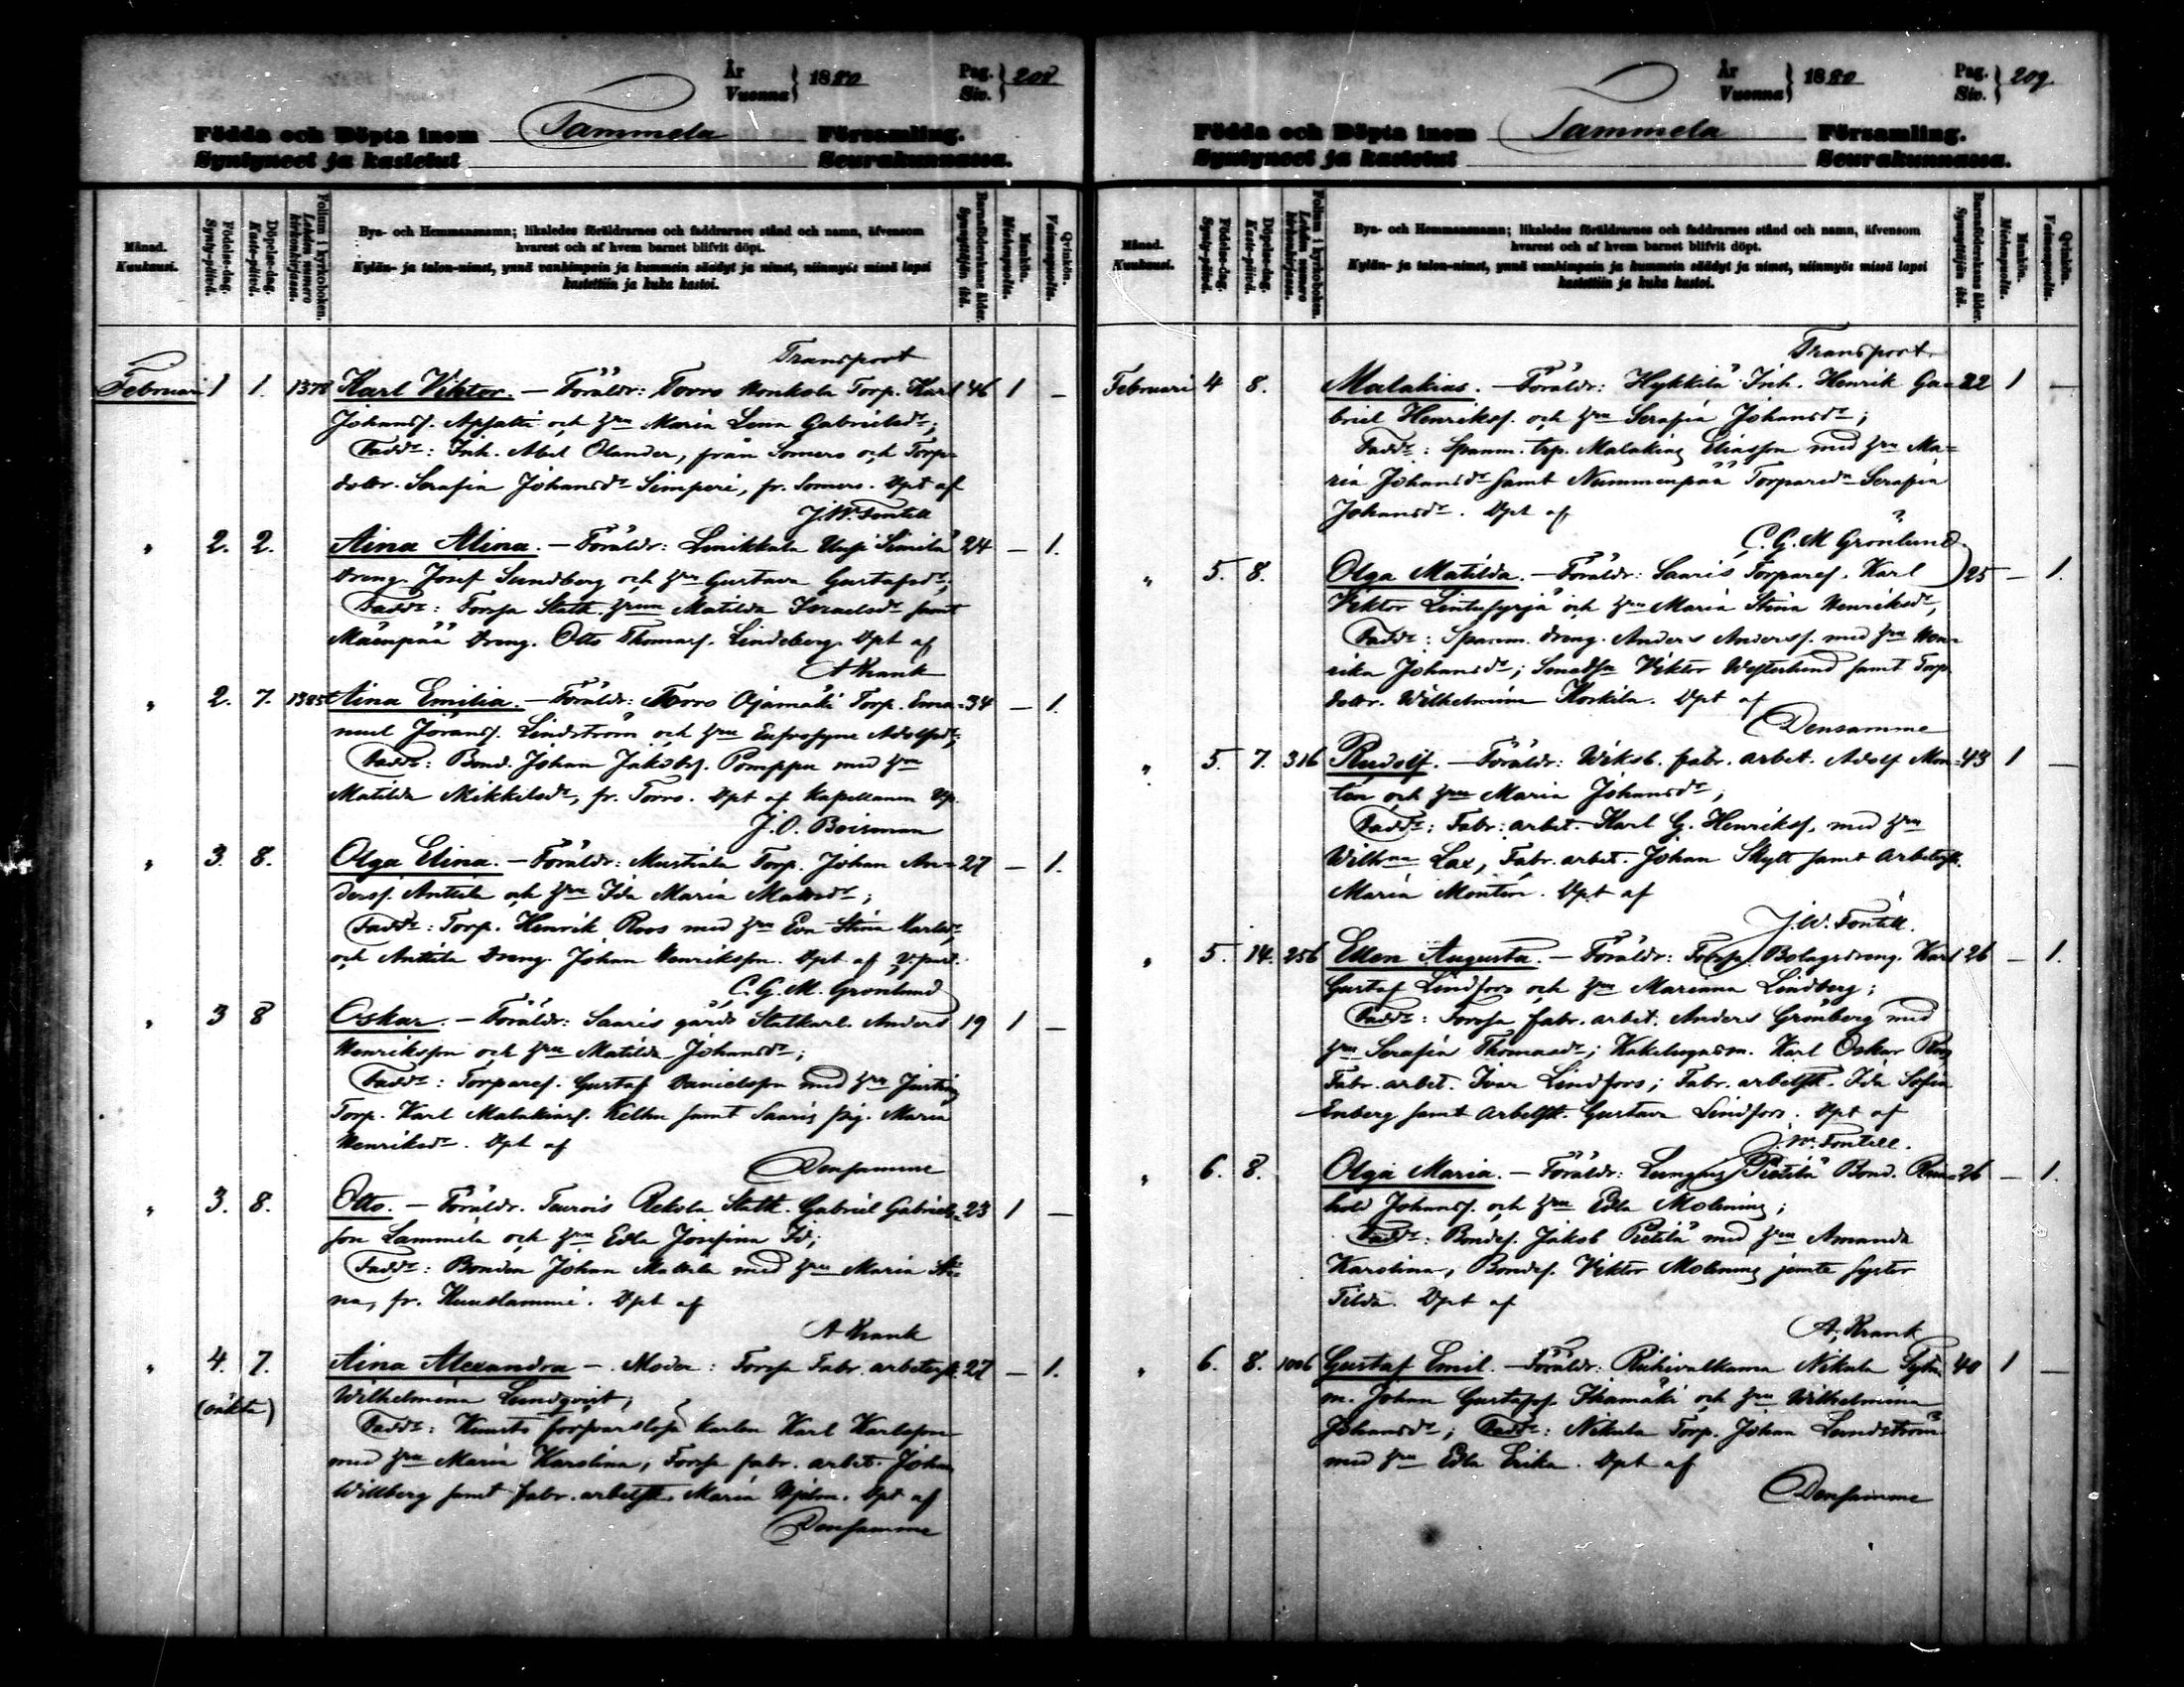 År
Vuonna } 1880
Pag.
Siv. } 208
Födda och Döpta inom Tammela Församling.
Syntyneet ja kastetut Seurakunnassa.
Månad.
Kuukausi.
Födelse-dag.
Synty-päivä.
Döpelse-dag.
Kaste-päivä.
Folium i kyrkoboken.
Lehden numero kirkonkirjassa.
Bya- och Hemmansnamn; likaledes föräldrarnes och faddrarnes stånd och namn, äfvensom
hvarest och af hvem barnet blifvit döpt.
Kylän- ja talon-nimet, ynnä vanhimpain ja kummein säädyt ja nimet, niinmyös missä lapsi
kastettiin ja kuka kastoi.
Barnaföderskans ålder.
Synnyttäjän ikä.
Mankön.
Miehenpuolta.
Qvinkön.
Vaimonpuolta.
Transport
Februari 1 1. 1378 Karl Viktor. — Föräldr: Torro Nonkola Torp. Karl 46 1 –
Johansf. Apfalti och hru Maria Lena Gabrielsdr;
Faddr: Inh. Abel Olander, från Somero och Torp-
dottr. Serafia Johansdr Simperi, fr. Somero. Dpt af
J.W. Fontell
" 2. 2. Aina Alina. — Föräldr: Linikkala Uusi Simila 24 – 1.
Dreng. Josef Sundberg och hru Gustava Gustafsdr;
Faddr: Forssa Statk. hrun Matilda Israelsdr samt
Mäenpää Dreng. Otto Thomasf. Lindeberg. Dpt af
A Krank
" 2. 7. 1385 Aina Emilia. — Föräldr: Torro Ojamäki Torp. Ema- 34 – 1.
nuel Jöransf. Lindström och hru Eufrosyne Adolfsdr;
Faddr: Bond. Johan Jakobsf. Pomppu med hru
Matilda Mikkilsdr, fr. Torro. Dpt af Kapellanen Vp.
J. O. Boisman
" 3. 8. Olga Elina. — Föräldr: Mustiala Torp. Johan An- 27 – 1.
dersf. Anttila och hru Ida Maria Mattsdr;
Faddr: Torp. Henrik Roos med hru Eva Stina Karlsdr,
och Anttila Dreng. Johan Henrikson. Dpt af V. past.
C. G. M. Grönlund
" 3 8 Oskar. — Föräldr: Saaris gårds Statkarl. Anders 19 1 –
Henrikson och hru Matilda Johansdr;
Faddr: Torparef. Gustaf Danielsson med hru Justina
Torp. Karl Malakiasf. Kelhu samt Saaris pig. Maria
Henriksdr. Dpt af
Densamme
" 3. 8. Otto. — Föräldr. Teurois Rekola Statk. Gabriel Gabriels- 23 1 –
son Lammela och hru Edla Josefina Id;
Faddr: Bonden Johan Mattila med hru Maria Sti-
na, fr. Kuuslammi. Dpt af
A Krank
" 4. 7. Aina Alexandra – Moder: Forssa Fabr. arbetersk. 27 – 1.
(oäkta) Wilhelmina Lundqvist;
Faddr: Kuusto försvarslöse karlen Karl Karlsson
med hru Maria Karolina, Forssa fabr. arbet. Johan
Willberg samt fabr. arbetsk. Maria Hjelm. Dpt af
Densamme
År
Vuonna } 1880
Pag.
Siv. } 209
Födda och Döpta inom Tammela Församling.
Syntyneet ja kastetut Seurakunnassa.
Månad.
Kuukausi.
Födelse-dag.
Synty-päivä.
Döpelse-dag.
Kaste-päivä.
Folium i kyrkoboken.
Lehden numero kirkonkirjassa.
Bya- och Hemmansnamn; likaledes föräldrarnes och faddrarnes stånd och namn, äfvensom
hvarest och af hvem barnet blifvit döpt.
Kylän- ja talon-nimet, ynnä vanhimpain ja kummein säädyt ja nimet, niinmyös missä lapsi
kastettiin ja kuka kastoi.
Barnaföderskans ålder.
Synnyttäjän ikä.
Mankön.
Miehenpuolta.
Qvinkön.
Vaimonpuolta.
Transport.
Februari 4 8. Malakias. — Föräldr: Hykkilä Inh. Henrik Ga- 22 1 –
briel Henriksf. och hru Serafia Johansdr;
Faddr: Spanm. trp. Malakias Eliasson med hru Ma-
ria Johansdr samt Nummenpää Torparedr Serafia
Johansdr. Dpt af
C. G. M Grönlund
" 5. 8. Olga Matilda. — Föräldr: Saaris Torparef. Karl 25 – 1.
Viktor Lintusyrjä och hru Maria Stina Henriksdr,
Faddr: Spanm. dreng. Anders Andersf. med hru Hen-
rika Johansdr; Viktor Westerlund samt Torp.
dottr. Wilhelmina Korkila. Dpt af
Densamme
" 5. 7. 316 Rudolf. — Föräldr: Wiksb. fabr. arbet. Adolf Mon- 43 1 –
tén och hru Maria Johansdr;
Faddr: Fabr. arbet. Karl G. Henriksf. med hru
Wilhna Lax, Fabr. arbet. Johan Skytt samt arbetsk.
Maria Montén. Dpt af
J.W. Fontell.
" 5. 14. 256 Ellen Augusta. — Föräldr: Forssa Bolagsdreng. Karl 26 – 1.
Gustaf Lindfors och hru Mariana Lindberg;
Faddr: Forssa fabr. arbet. Anders Grönberg med
hru Serafia Thomasdr; Kakelugnsm. Karl Oskar Roos
Fabr. arbet. Ivar Lindfors; Fabr. arbetsk. Ida Sofia
Enberg samt arbetsk. Gustava Lindfors. Dpt af
J.W. Fontell.
" 6. 8. Olga Maria. — Föräldr: Lungus Pietilä Bond. Rein- 26 – 1.
hold Johansf. och hru Edla Molenius;
Faddr: Bondef. Jakob Pietilä med hru Amanda
Karolina, Bondef. Viktor Molenius jemte syster
Tilda. Dpt af
A. Krank
" 6. 8. 1006 Gustaf Emil. — Föräldr: Riihivalkama Nikula Sytn. 40 1 –
m. Johan Gustafsf. Ikamäki och hru Wilhelmina
Johansdr; Faddr: Nikula Torp. Johan Lundström
med hru Edla Erika. Dpt af
Densamme